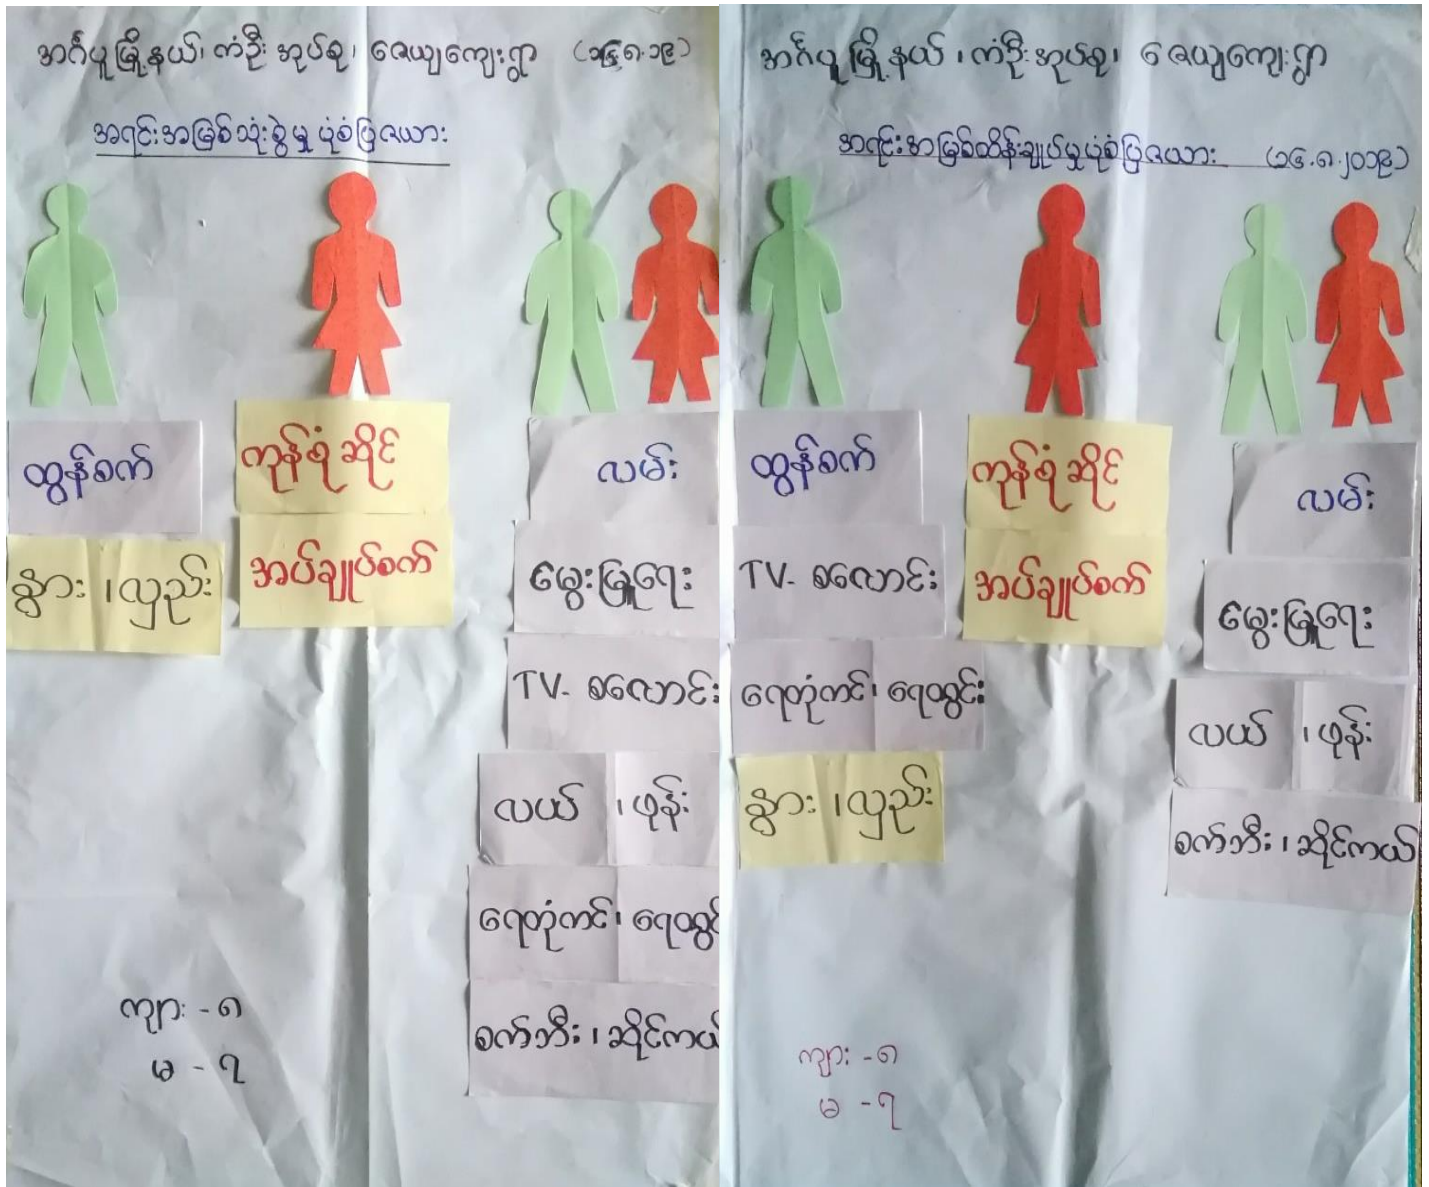 အင်္ဂပူမြို့နယ်၊ ကံဦးအုပ်စု၊ ဇေယျကျေးရွာ (၁၄.၈.၁၉)
အရင်းအမြစ်သုံးစွဲမှုပုံစံပြဇယား
ထွန်စက်
နွား၊လှည်း
ကုန်စုံဆိုင်
အပ်ချုပ်စက်
လမ်း
မွေးမြူရေး
TV- စလောင်း
လယ် ၊ဖုန်း
ရေတုံကင်၊ ရေတွင်
စက်ဘီး ၊ ဆိုင်ကယ်
ကျား - ၈
မ - ၇
အင်္ဂပူမြို့နယ် ၊ ကံဦးအုပ်စု၊ ဇေယျကျေးရွာ
အရင်းအမြစ်ထိန်းချုပ်မှုပုံစံပြဇယား (၁၄.၈.၂၀၁၉)
ထွန်စက်
TV- စလောင်း
ရေတုံကင်၊ ရေတွင်း
နွား ၊လှည်း
ကုန်စုံဆိုင်
အပ်ချုပ်စက်
လမ်း
မွေးမြူရေး
လယ် ၊ဖုန်း
စက်ဘီး ၊ ဆိုင်ကယ်
ကျား - ၈
မ - ၇